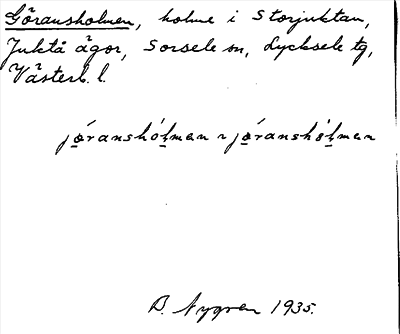 Göransholmen, holme i Storjuktan,
Juktå ägor, Sorsele sn, Lycksele tg,
Västerb. l.
jǿranshólman ~ jǿranshólman
B. Nygren 1935.